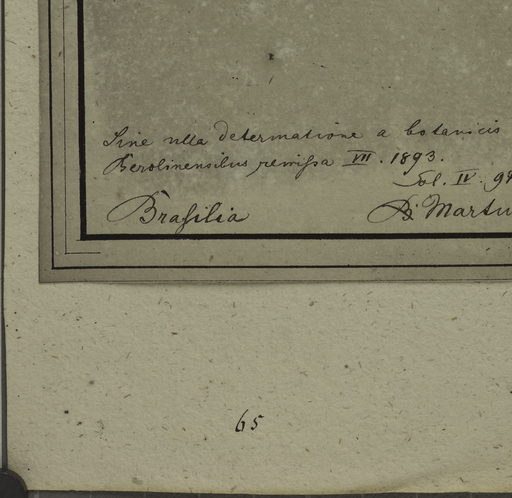 Sine ulla determatione a botanicis
Berolinensibus remissa VII. 1893.
Fol. IV. 94
Brasilia Martu
65